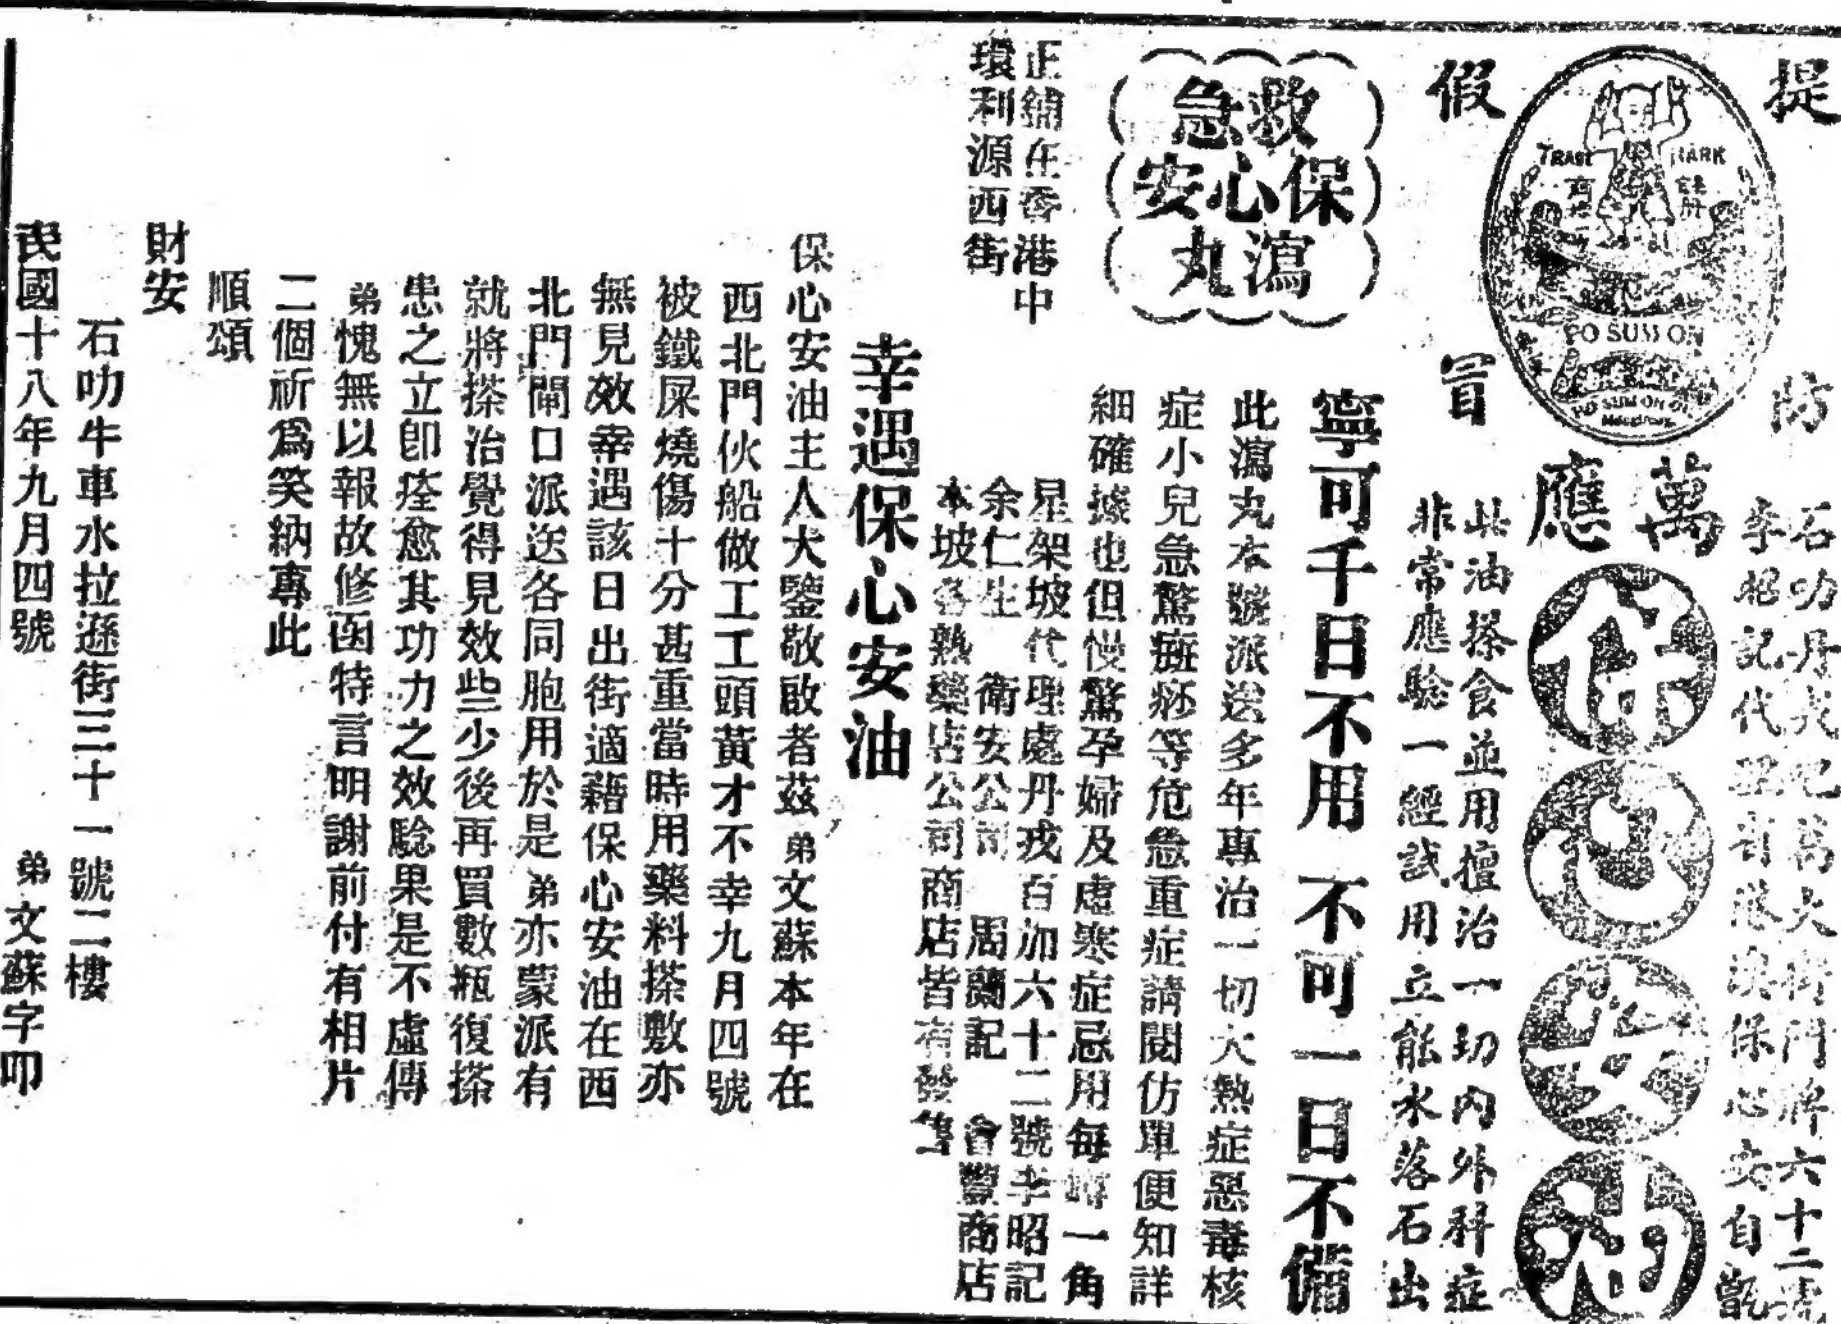 提防
假冒
TRADE MARK
商標
PO SUM ON
PO SUM ON OIL
石叻丹戎巴葛大街門牌六十二號
李昭記代理香港保心安自製
萬應
保心安油
其油搽食並用擅治一切內外科症
非常應驗一經試用立能水落石出
寧可千日不用不可一日不備
救急
保心安
瀉丸
此瀉丸本號派送多年專治一切大熱症惡毒核
症小兒急驚疳痧等危急重症請閱仿單便知詳
細確據也但慢驚孕婦及虛寒症忌用每樽一角
正鋪在香港中
環利源西街
星架坡代理處丹戎百加六十二號李昭記
余仁生 衛安公司 周蘭記 會豐商店
本坡各熟藥店公司商店皆有發售
幸遇保心安油
保心安油主人大鑒敬啟者茲弟文蘇本年在
西北門伙船做工工頭黃才不幸九月四號
被鐵屎燒傷十分甚重當時用藥料搽敷亦
無見效幸遇該日出街適藉保心安油在西
北門閘口派送各同胞用於是弟亦蒙派有
就將搽治覺得見效些少後再買數瓶復搽
患之立卽痊愈其功力之效騐果是不虛傳
弟愧無以報故修函特言明謝前付有相片
二個祈爲笑納專此
順頌
財安
石叻牛車水拉遜街三十一號二樓
民國十八年九月四號 弟文蘇字叩